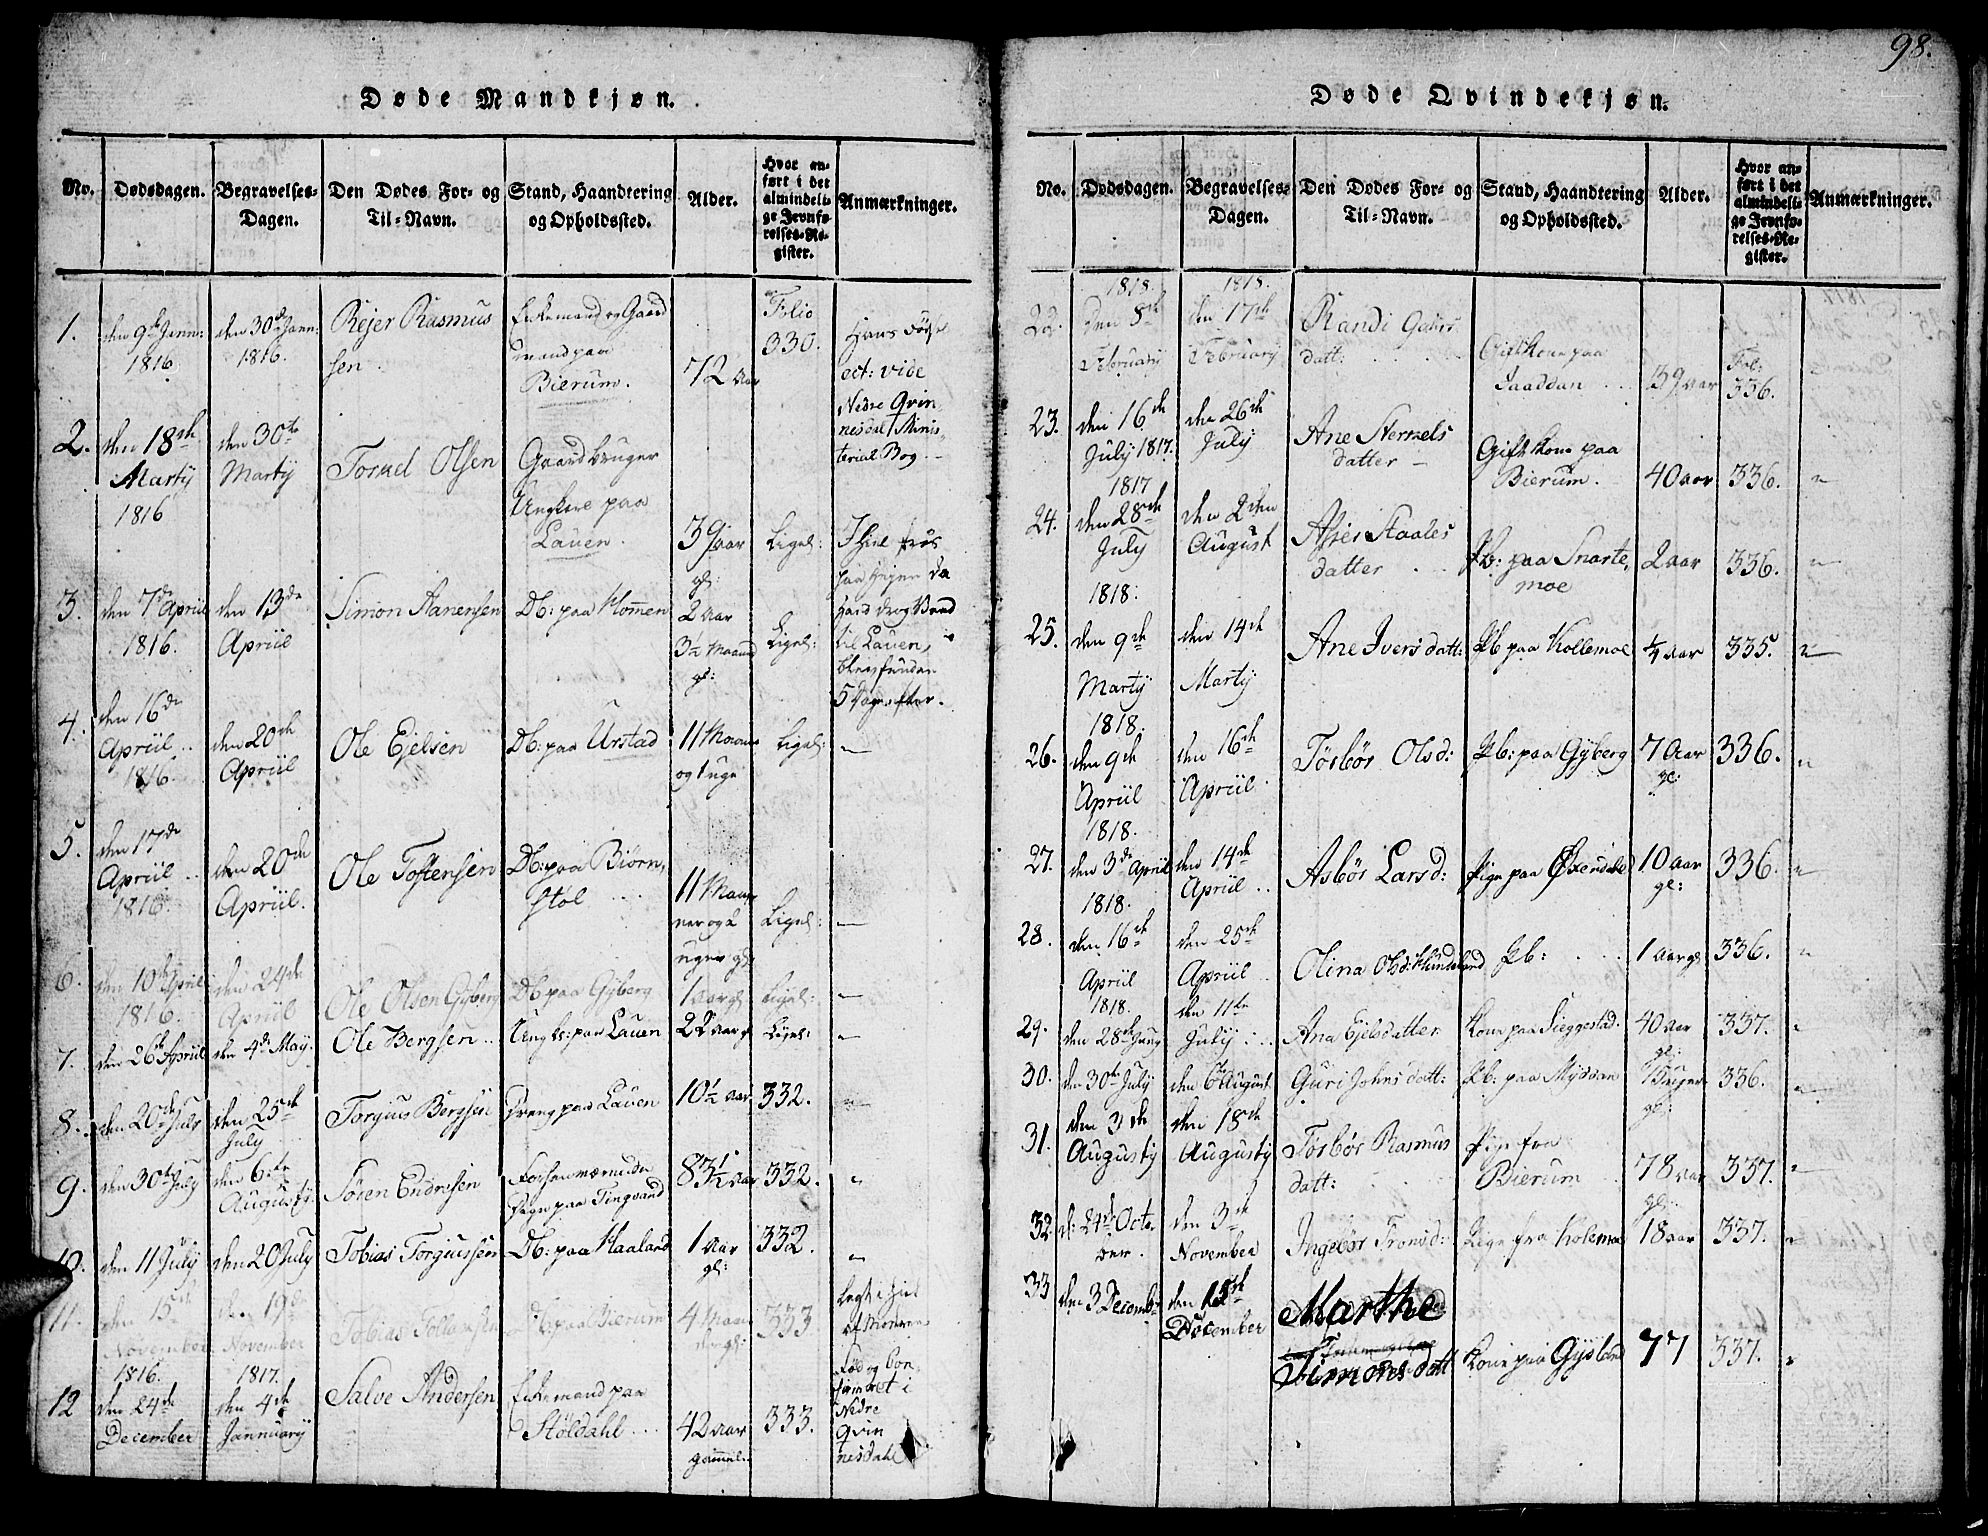 98.
Døde Mandkjøn.
No. Dødsdagen. Begravelses-Dagen. Den Dødes For- og Til-Navn. Stand, Haandtering og Opholdssted. Alder. Hvor anført i det almindelige Jevnførelses-Register. Anmærkninger.
1. den 9de Jann: 1816. den 30te Jann: 1816. Rejer Rasmussen Enkemand og Gaardmand paa Bierum. 72 Aar Folio 330.
ect: vide Nedre Qvinnesdal Ministerial Bog.
2. den 18de Martÿ 1816 den 30te Martÿ Torkel Olsen Gaardbruger Ungkarl paa Lauen. 39 aar gl: Ligel:
til Lauen, 5 Dage efter.
3. den 7de Apriil 1816. den 13de Apriil Simon Aanensen Db: paa Homen 2 Aar 3½ Maaned gl: Ligel:
4. den 16de Apriil 1816. den 20de Apriil Ole Ejelsen Db: paa Urstad 11 Maaner og 1 uge Ligel: —
5. den 17de Apriil 1816. den 20de Apriil. Ole Tostensen Db: paa Biørnstøl 11 Maaner og 2 uger gl: Ligel: —
6. den 10de Apriil 1816. den 24de Apriil Ole Olsen Gyberg Db paa Gyberg 1 Aar gl: Ligel: —
7. den 26de Apriil den 4de May. Ole Bergsen Ungk: paa Lauen 22 Aar gl Ligel: —
8. den 20de July den 25de July Torgius Bergsen Dreng paa Lauen 10½ Aar 332. —
9. den 30te July den 6te Augusty. Søren Endresen paa Tingvand 83½ Aar 332. "
10. den 11 July den 20 July Tobias Torgiussen Db: paa Haaland 1 Aar gl: 332. "
11. den 15de November den 19de November Tobias Tollaksen paa Bierum 4 333
12 1816. den 24de December 1817. den 4de Jannuarÿ Salve Andersen Enkemand paa Støldahl 42 Aar gammel 333. Fød og Confirmeret i Nedre Qvinnesdahl
Døde Qvindekjøn.
No. Dødsdagen. Begravelses-Dagen. Den Dødes For- og Til-Navn. Stand, Haandtering og Opholdssted. Alder. Hvor anført i det almindelige Jevnførelses-Register. Anmærkninger.
22. 1818. den 8de February 1818. den 17de February Randi datt: Gift Kone paa 39 Aar Fol: 336.
23. den 16de July 1817. den 26de July Ane datter — Gift Kone paa Bierum. 40 aar 336. "
24. 1817 den 28de July den 2den August Staalesdatter Pb: paa Snartemoe 2 aar 336. "
25. 1818: den 9de Martÿ den 14de Martÿ Ane Iversdatt: Pb paa Kollemoe ¼ Aar 335. "
26. 1818. den 9de Apriil den 16de Apriil Torbør Olsd: Pb: paa Gyberg 7 Aar gl: 336. "
27. 1818. den 3de Apriil den 14de Apriil Asbør Larsd: Pige paa Øxendahl 10 aar gl: 336. "
28. 1818. den 16de Apriil den 25de Apriil Olina Olsd: Pb: 1 Aar gl 336. "
29. 1818. den 28de Juny den 11te July Ana Ejelsdatter Kone paa Sieggestad. 40 Aar gl: 337. "
30. den 30te July den 6te August Guri Johnsdatt: Pb: paa 7 Uger gl: 336. "
31. den 3de Augusty den 18de Augusty Torbør Rasmusdatt: Pige fra Bierum 78 aar gl: 337. "
32. d: 24de October den 3de November Ingebør Pige fra Kolemoe 18 aar 337. "
33 den 3 Decemb: den 15de December Marthe Simonsdatt Kone paa Gysland 77 337. "